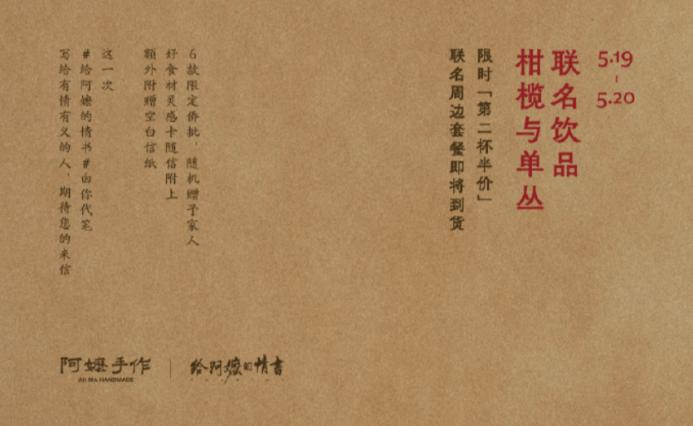 5.19
-
5.20
联名饮品
柑榄与单丛
限时「第二杯半价」
联名周边套餐即将到货
6款限定侨批，随机赠予家人
好食材灵感卡随信附上
额外附赠空白信纸
这一次
#给阿嬷的情书#由你代笔
写给有情有义的人，期待您的来信
阿嬷手作
AH MA HANDMADE
给阿嬷的情书